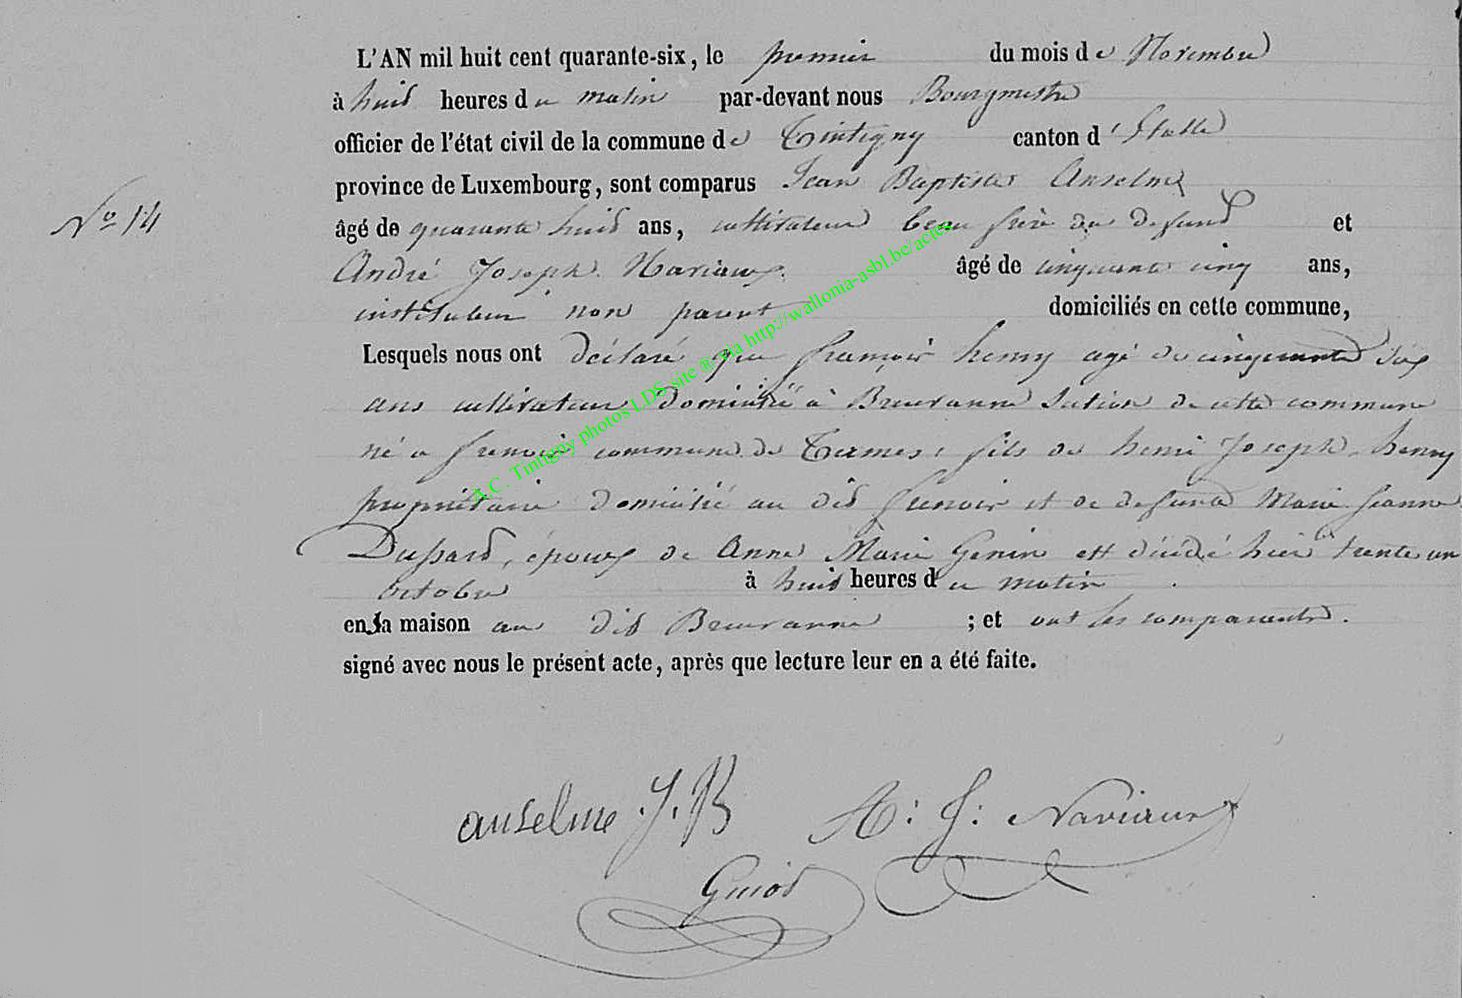 L'AN mil huit cent quarante-six, le premier du mois de Novembre
à huit heures du matin par-devant nous Bourgmestre
officier de l'état civil de la commune de Tintigny canton d'Etalle
province de Luxembourg, sont comparus Jean Baptiste Anselme
N° 14
âgé de quarante huit ans, cultivateur beau frère du defunt et
André Joseph Naviaux âgé de cinquante cinq ans,
instituteur non parent domiciliés en cette commune,
Lesquels nous ont déclaré que françois henry agé de cinquante six
ans cultivateur domicilié à Breuvanne Section de cette commune
né a frenoir commune de Termes, fils de henri Joseph henry
propriétaire domicilié au dit frenoir et de defunte Marie Jeanne
Dussard, époux de Anne Marie Genin est décédé hier trente un
octobre à huit heures du matin
en sa maison au dit Breuvanne ; et ont les comparants
signé avec nous le présent acte, après que lecture leur en a été faite.
anselme J. B A: J: Naviaux
Guiot
A.C. Tintigny photos LDS site @ via http://wallonia-asbl.be/actes